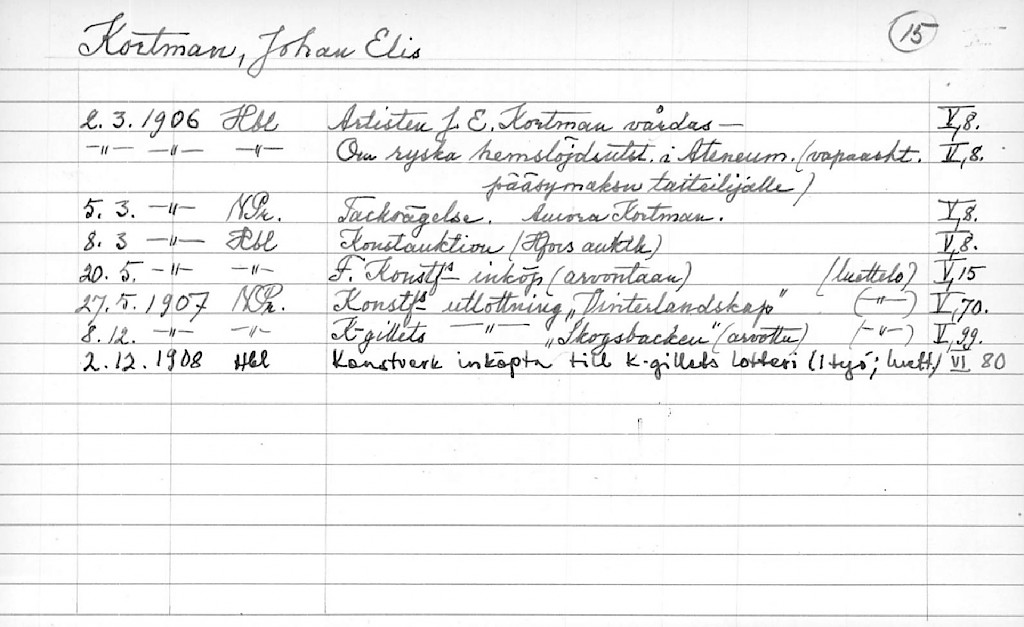 Kortman, Johan Elis 15
2.3.1906 Hbl Artisten J. E. Kortman vårdas — V,8.
—"— —"— —"— Om ryska hemslöjdsutst. i Ateneum. (vapaaeht. V,8.
pääsymaksu taiteilijalle)
5.3. —"— NPr. Tacksägelse. Aurora Kortman. V,8.
8.3 —"— Hbl Konstauktion (Hfors auktk) V,8.
20.5. —"— —"— F. Konstfs inköp (arvontaan) (luettelo) V,15
27.5.1907 NPr. Konstfs utlottning „Vinterlandskap" (—"—) V,70.
8.12. —"— —"— K-gillets —"— „Skogsbacken" (arvottu) (—"—) V,99.
2.12.1908 Hbl Konstverk inköpta till K-gillets lotteri (1 työ; luett.) VI 80